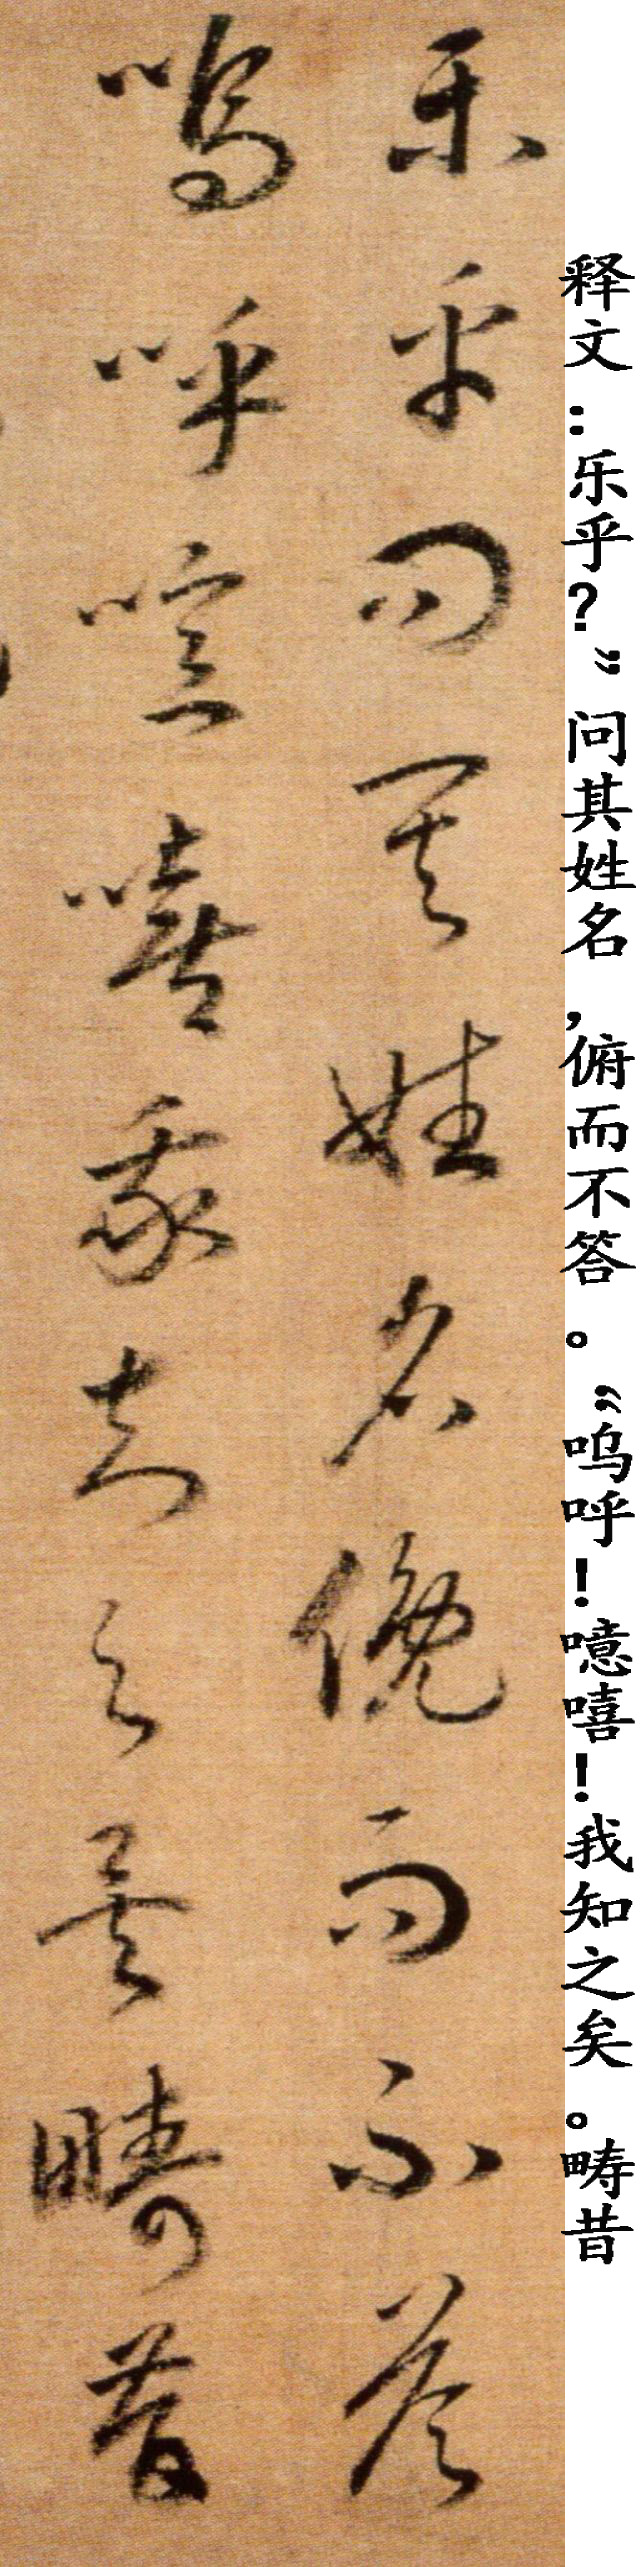 释文:乐乎?”问其姓名,俯而不答。“呜呼!噫嘻!我知之矣。畴昔
樂乎問其姓名俛而不答
嗚呼噫嘻我知之矣疇昔